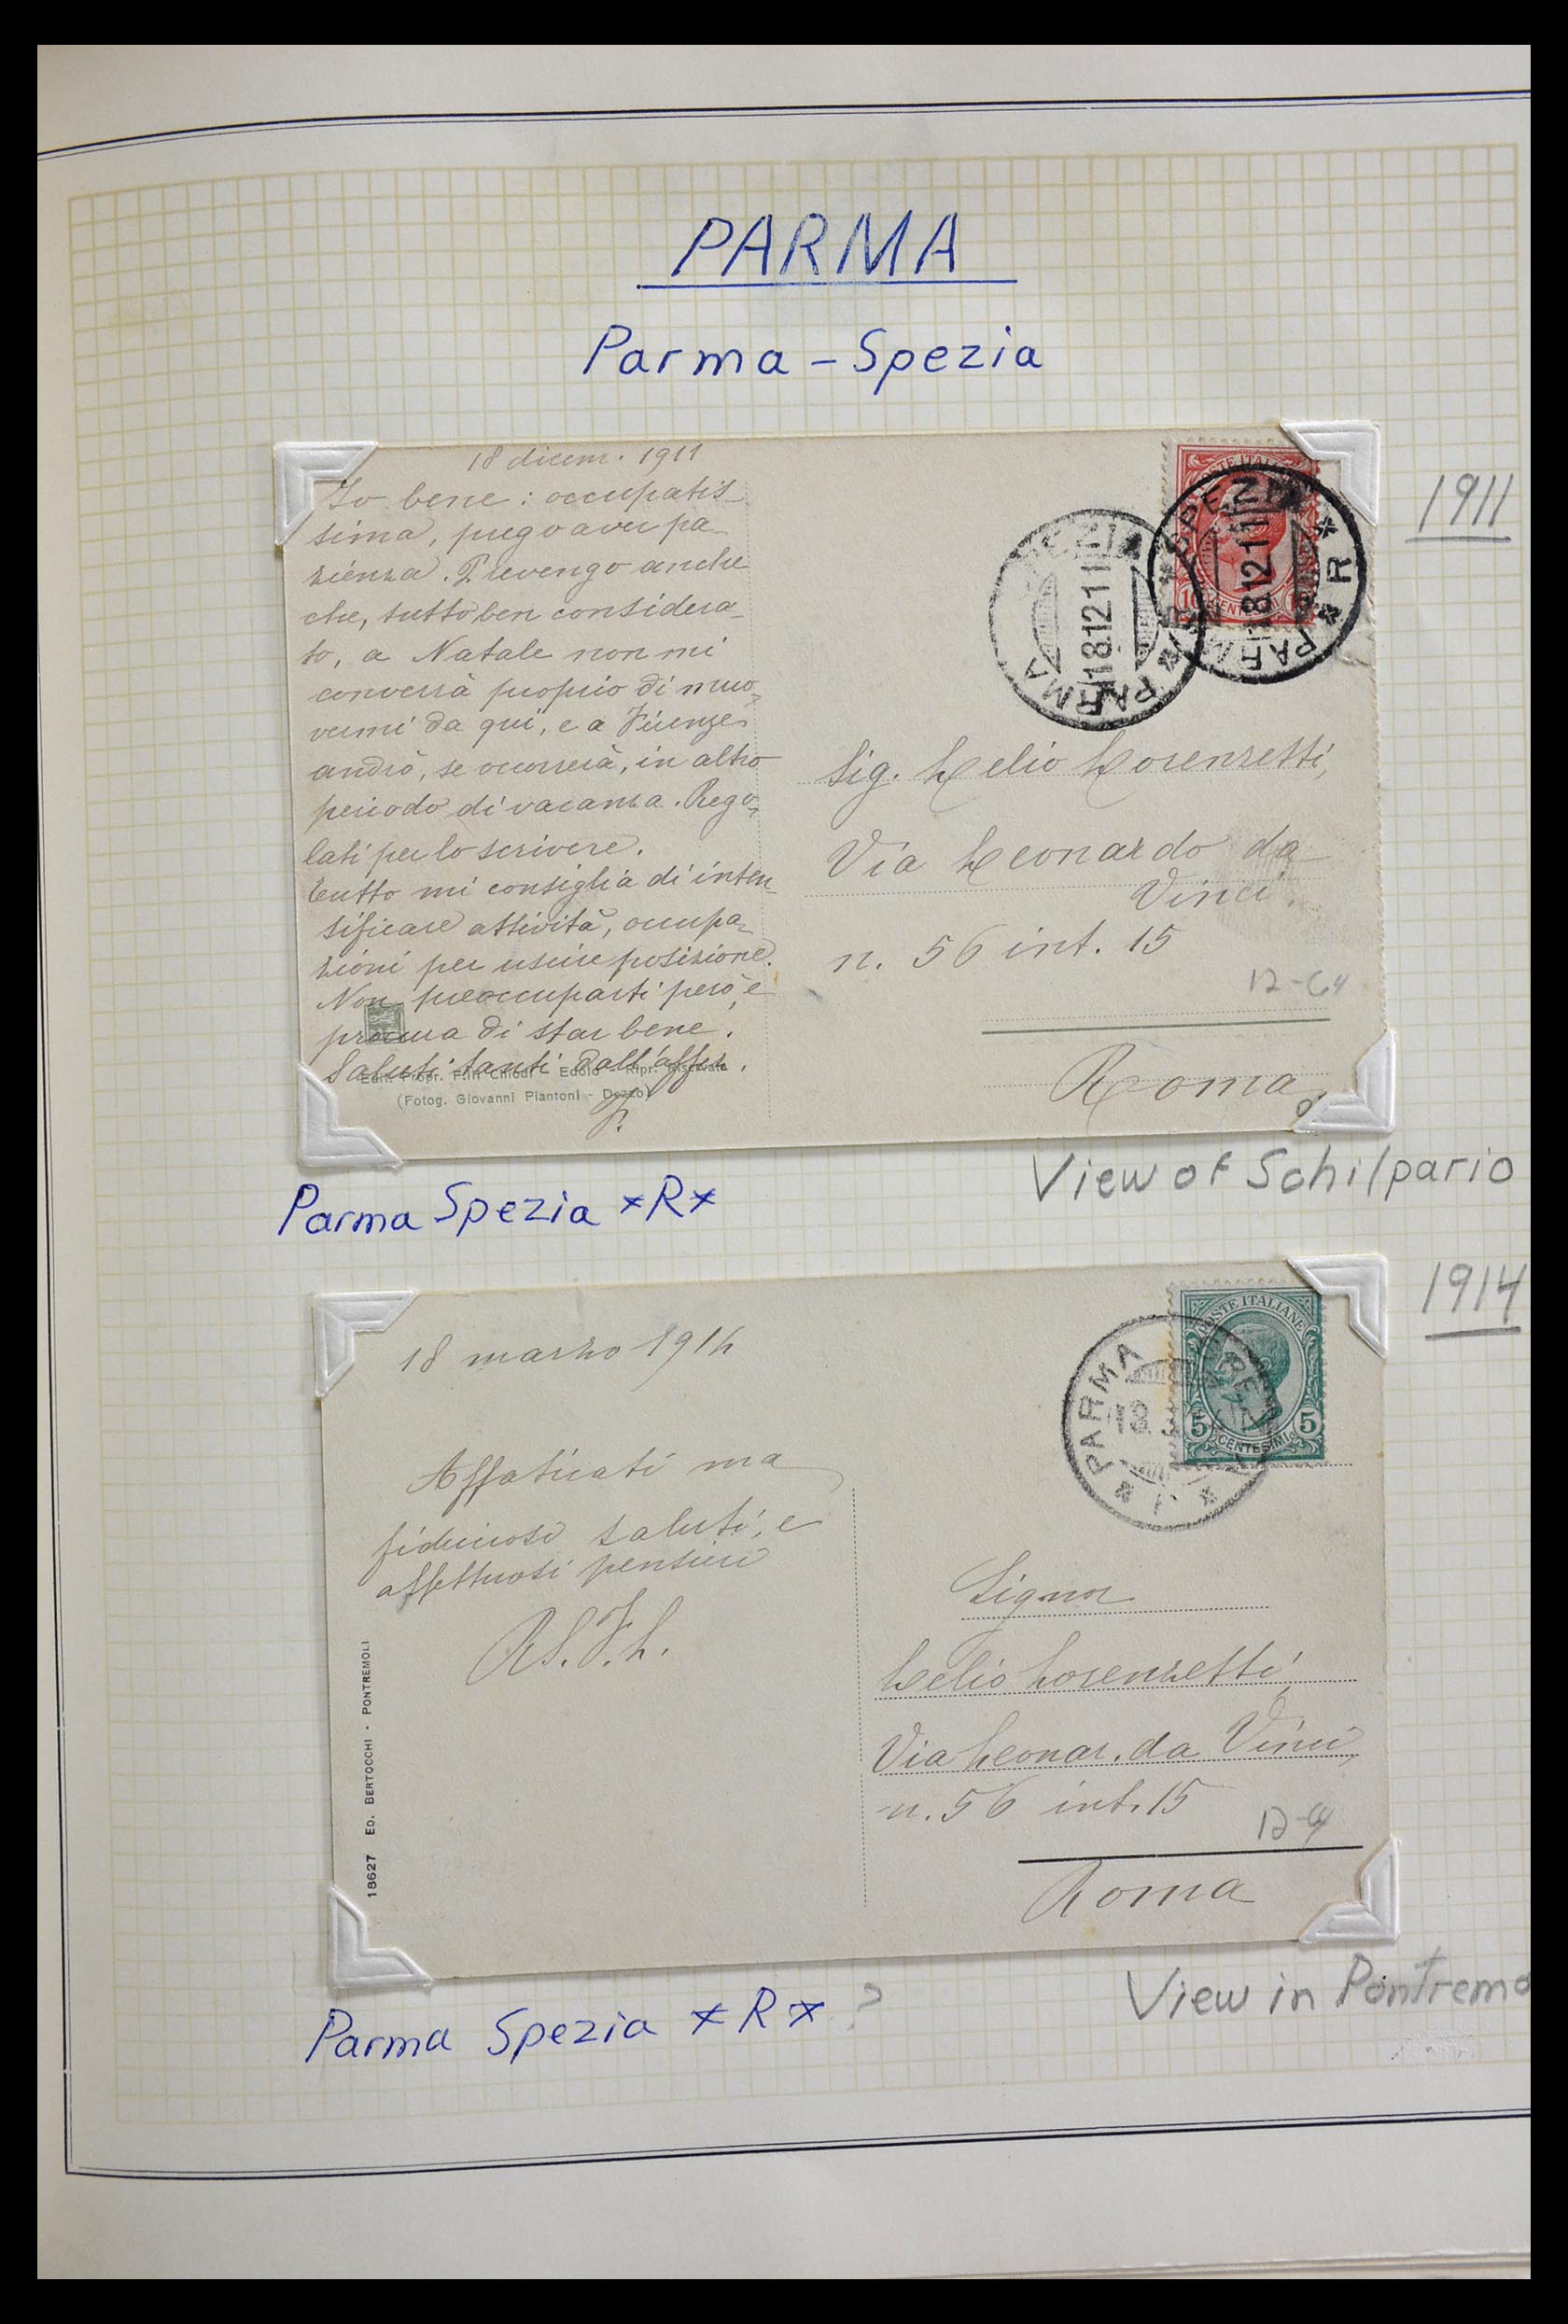 PARMA
Parma - Spezia
1911
18 dicem. 1911
Io bene: occupatis-
sima, prego aver pa-
zienza. Prevengo anche
che, tutto ben considera-
to, a Natale non mi
converrà proprio di muo-
vermi da qui, e a Firenze
andrò, se occorrerà, in altro
periodo di vacanza. Rego-
lati per lo scrivere.
Tutto mi consiglia di inten-
sificare attività, occupa-
zioni per uscire posizione.
Non preoccuparti però, e
procura di star bene.
Saluti tanti dall'affez.
F.
Edit. Propr. F.lli Chiodi - Edolo - Ripr. Riservata
(Fotog. Giovanni Piantoni - Dezzo)
POSTE ITALIANE
10 CENTESIMI 10
SPEZIA * R * PARMA
18.12.11
SPEZIA * R * PARMA
18.12.11
Sig. Lelio Lorenzetti,
Via Leonardo da
Vinci,
n. 56 int. 15
12-64
Roma
Parma Spezia *R*
View of Schilpario
1914
18 marzo 1914
Affaticati ma
fiduciosi saluti, e
affettuosi pensieri
18627 ED. BERTOCCHI - PONTREMOLI
POSTE ITALIANE
5 CENTESIMI 5
PARMA
18.
Signor
Lelio Lorenzetti,
Via Leonar. da Vinci,
n. 56 int. 15
Roma
Parma Spezia *R* ?
View in Pontremo